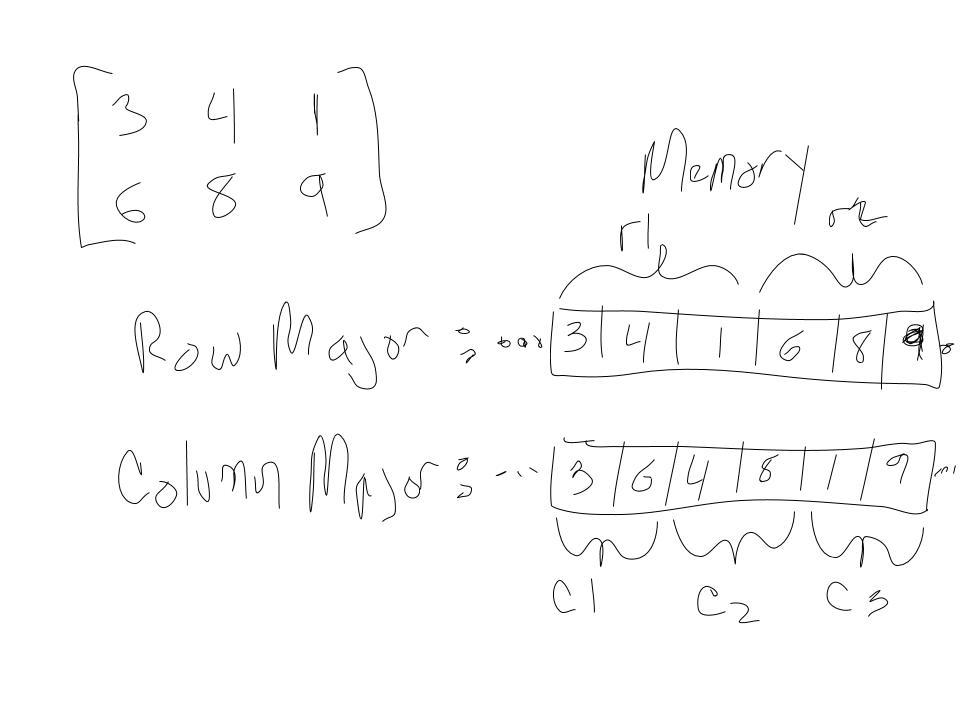 3 4 1
6 8 9
Memory
r1 r2
Row Major : ... 3 4 1 6 8 9 ...
Column Major : ... 3 6 4 8 1 9 ...
C1 C2 C3